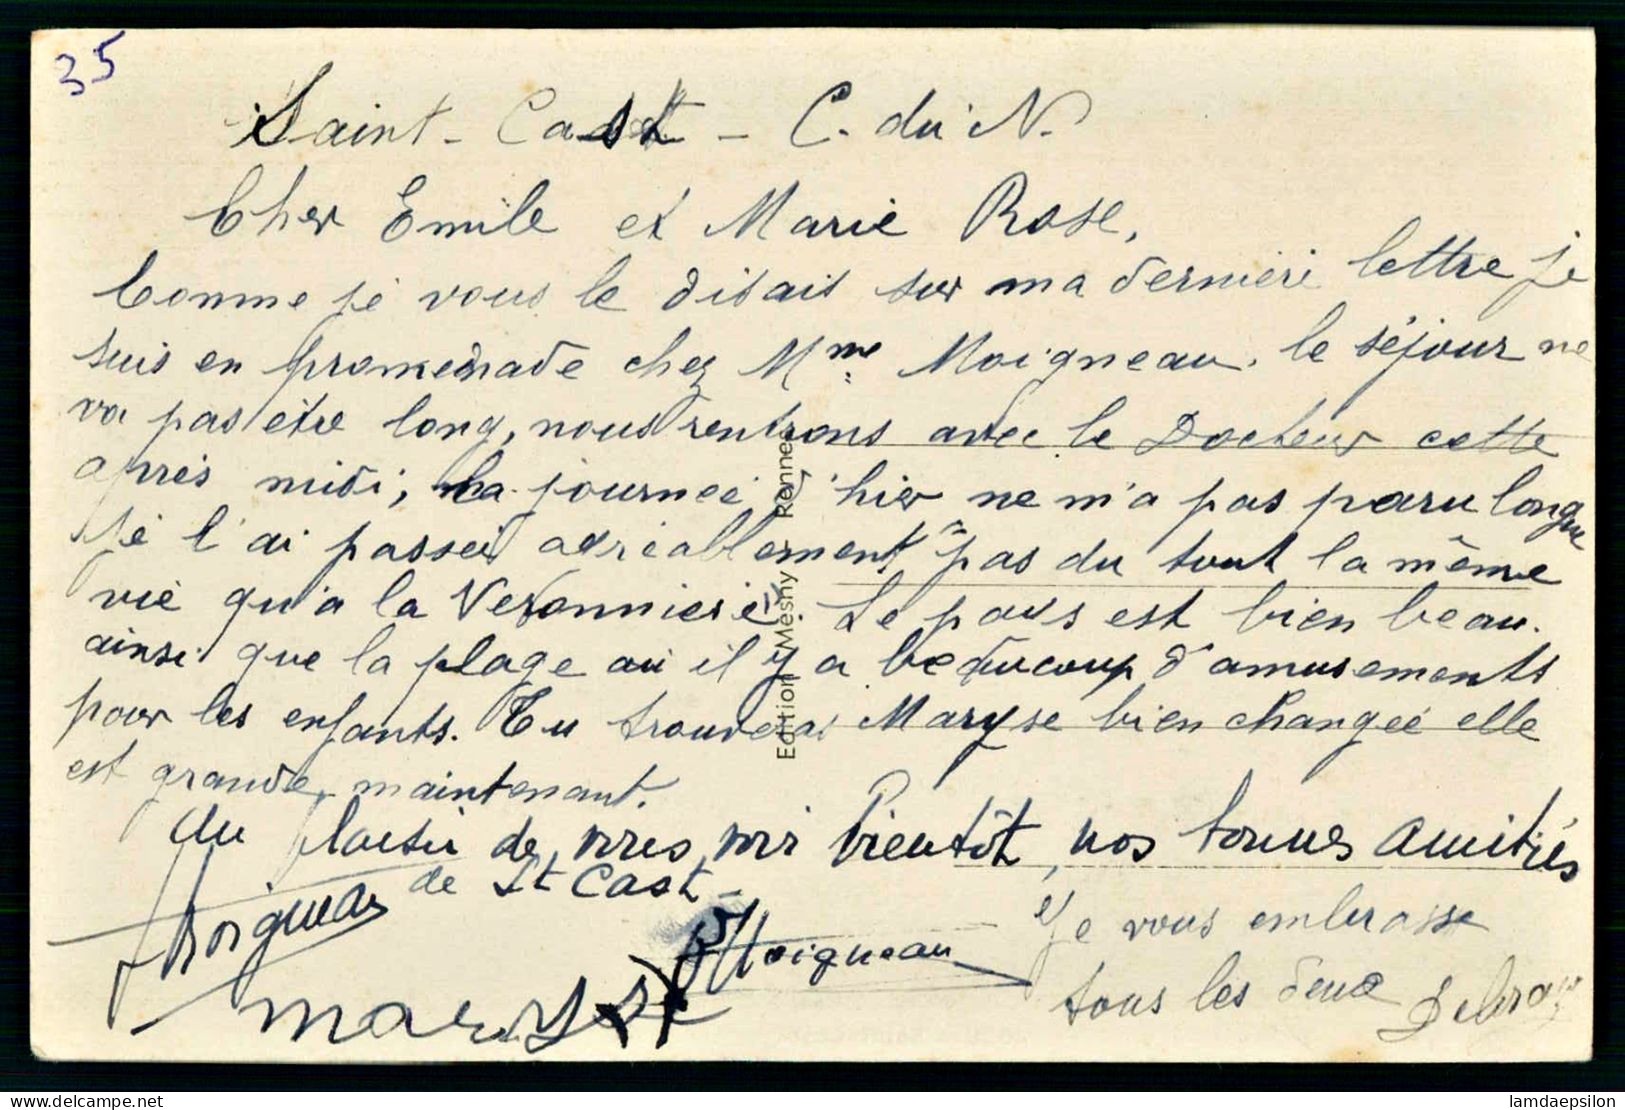 35
Saint-Cast - C. du N.
Cher Emile et Marie Rose,
Comme je vous le disais sur ma dernière lettre je
suis en promenade chez Mme Moigneau. le séjour ne
va pas être long, nous rentrons avec le Docteur cette
après midi, la journée d'hier ne m'a pas paru longue
je l'ai passée agréablement pas du tout la même
vie qu'a la Veronniere. Le pays est bien beau.
ainsi que la plage ou il y a beaucoup d'amusements
pour les enfants. Tu trouveras Maryse bien changée elle
est grande maintenant.
Au plaisir de vous voir bientôt, nos bonnes amitiés
de St Cast -
Moigneau
Moigneau
Maryse
Je vous embrasse
tous les deux Debray
Edition Mesny - Rennes
lamdaepsilon